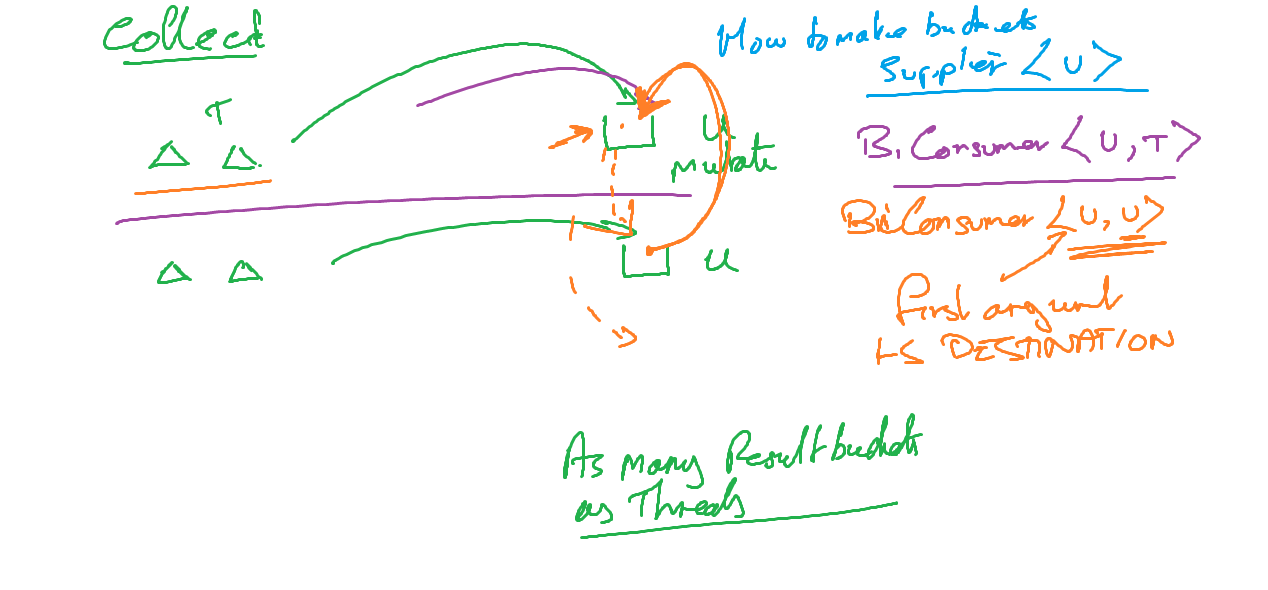 Collect
How to make buckets
Supplier <U>
T
U
Mutate
BiConsumer <U,T>
BiConsumer <U,U>
U
First argument
IS DESTINATION
As many Result buckets
as Threads